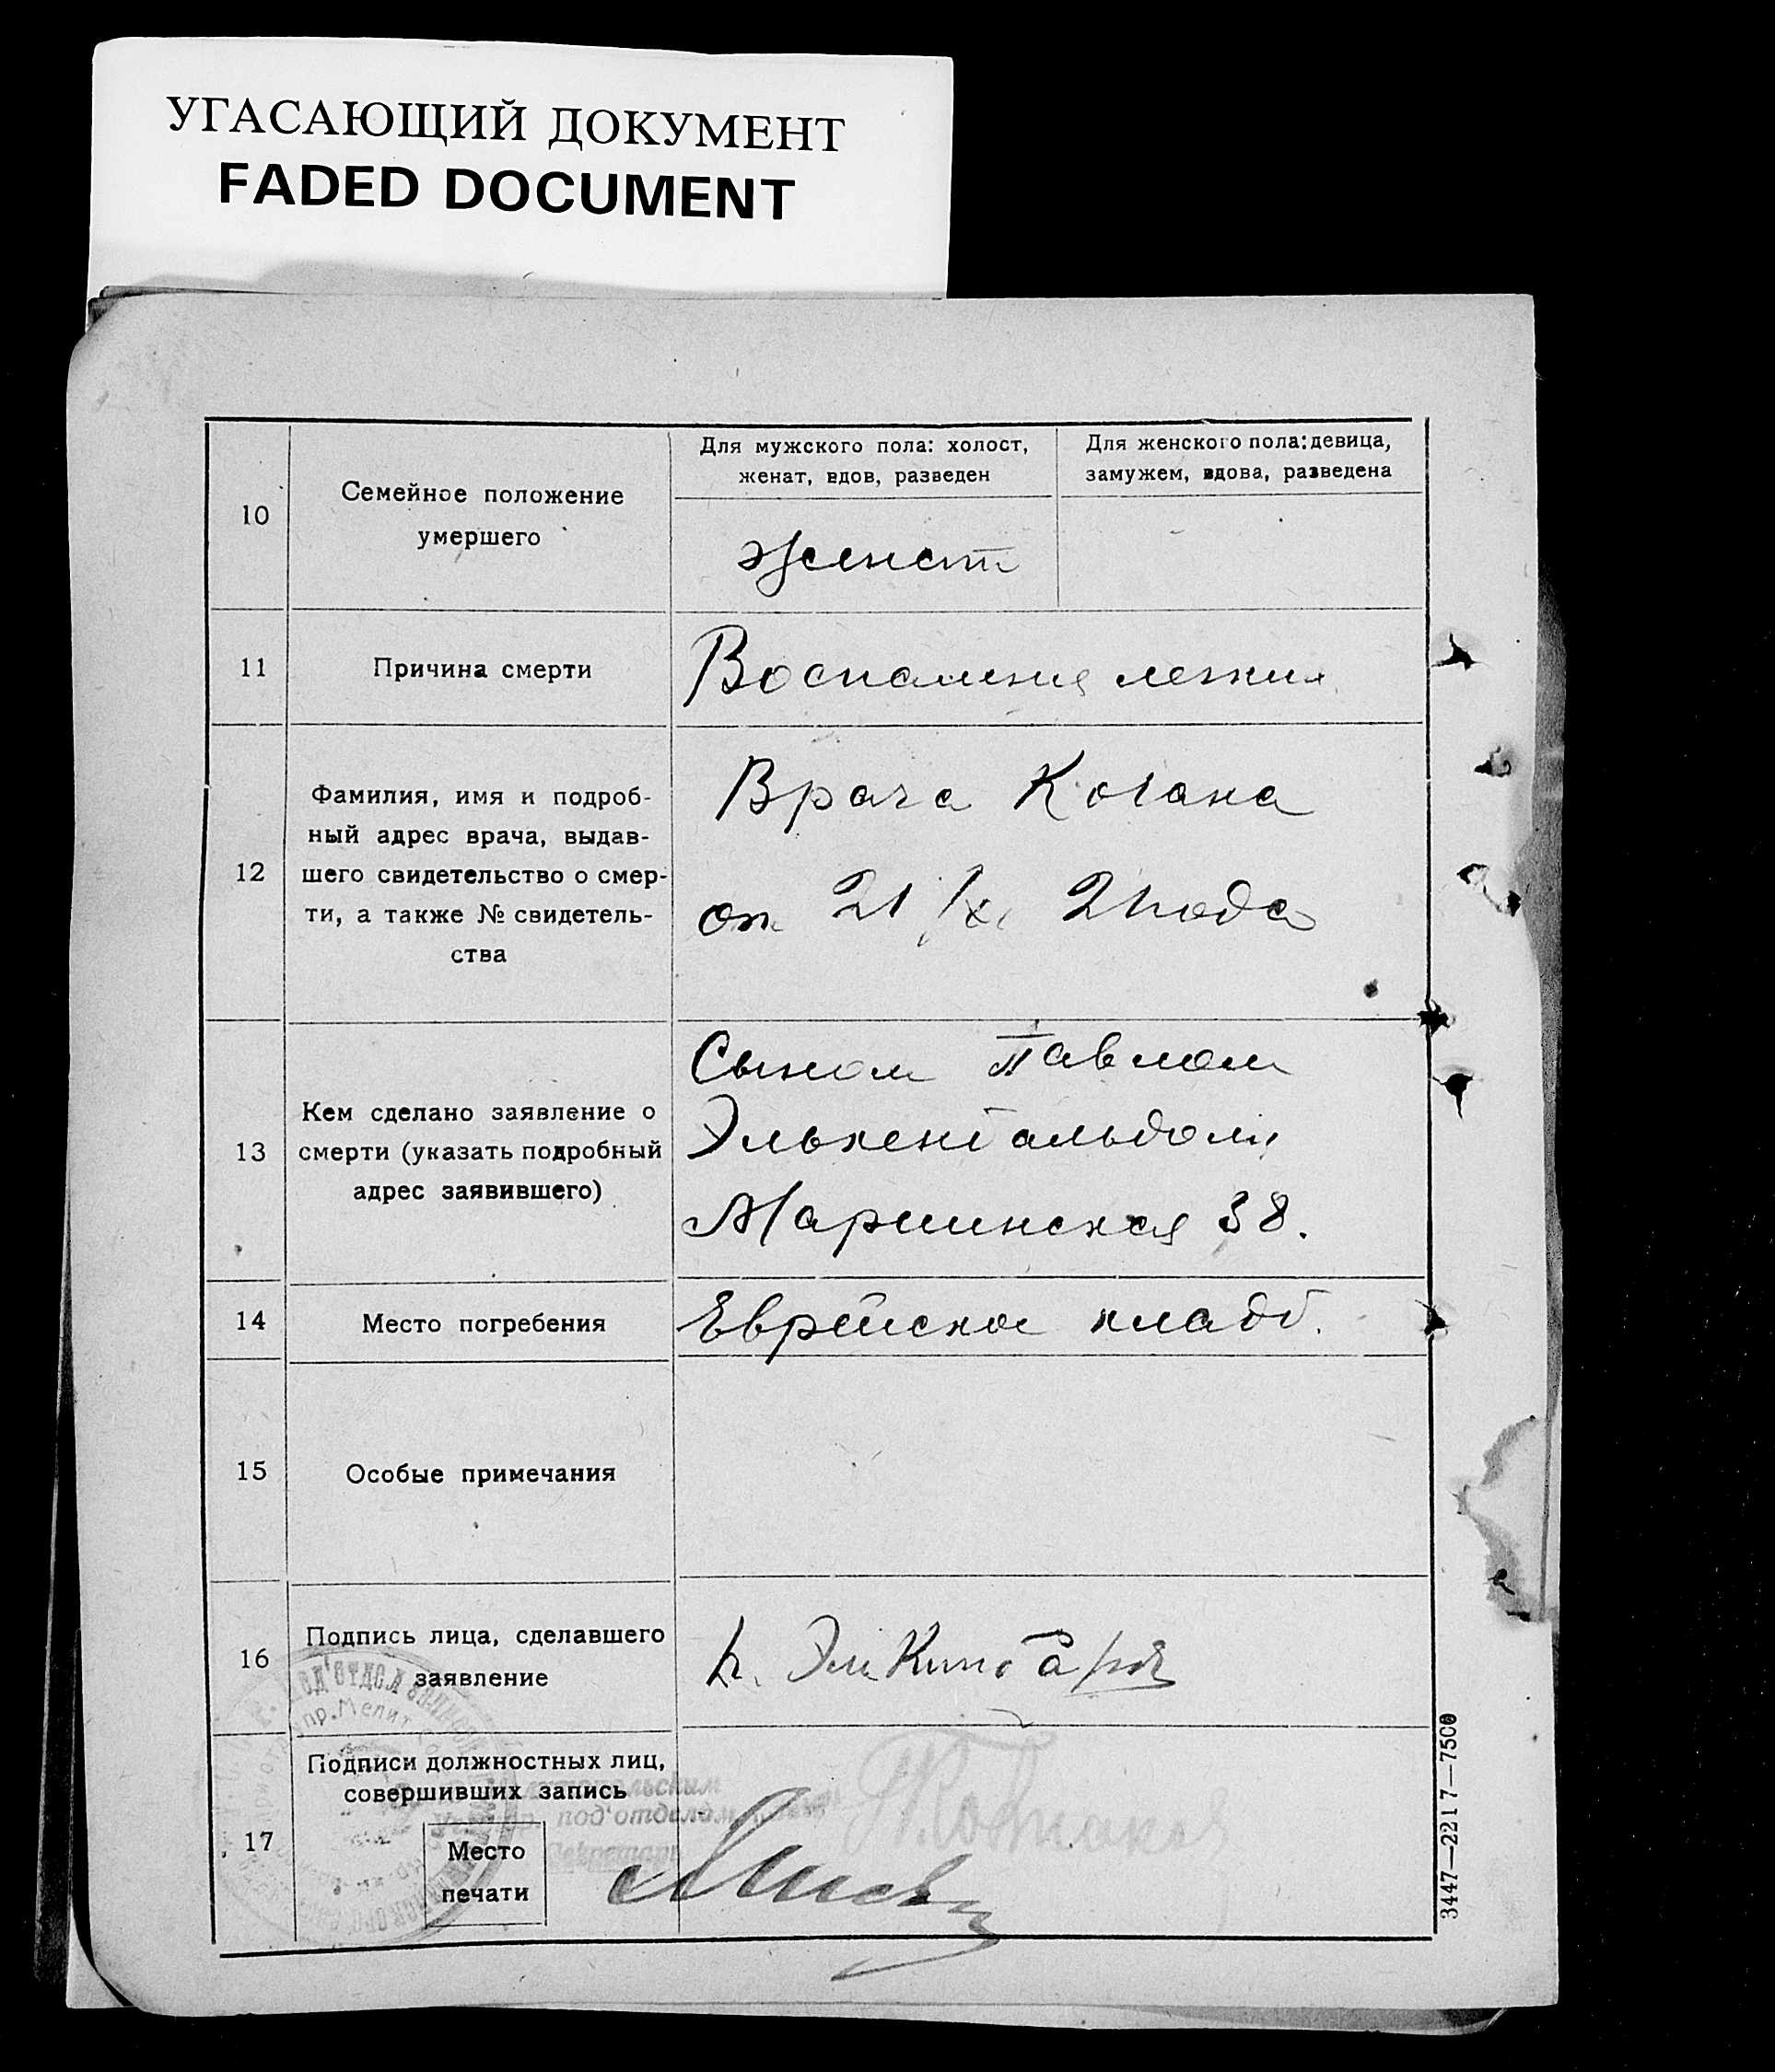 УГАСАЮЩИЙ ДОКУМЕНТ
FADED DOCUMENT
10
Семейное положение
умершего
Для мужского пола: холост,
женат, вдов, разведен
Для женского пола: девица,
замужем, вдова, разведена
женат
11
Причина смерти
Воспаление легких
12
Фамилия, имя и подроб-
ный адрес врача, выдав-
шего свидетельство о смер-
ти, а также № свидетель-
ства
Врача Когана
от 21/XI 21 года
13
Кем сделано заявление о
смерти (указать подробный
адрес заявившего)
Сыном Павлом
Элькентальдом
Мариинская 38.
14
Место погребения
Еврейское кладб.
15
Особые примечания
16
Подпись лица, сделавшего
заявление
17
Подписи должностных лиц,
совершивших запись
под'отдела
Секретарь
Место
печати
3447—2217—7500